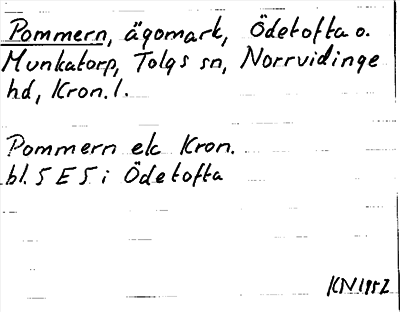 Pommern, ägomark, Ödetofta o.
Munkatorp, Tolgs sn, Norrvidinge
hd, Kron. l.
Pommern elc Kron.
bl. 5 E 5 i Ödetofta
KN 1952